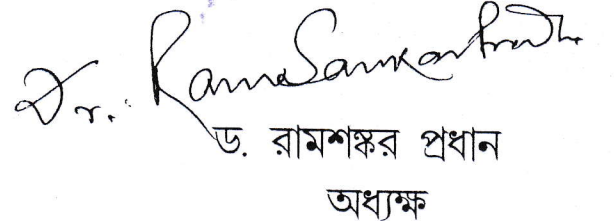 Dr. Ramasankar Pradhan
ড. রামশঙ্কর প্রধান
অধ্যক্ষ